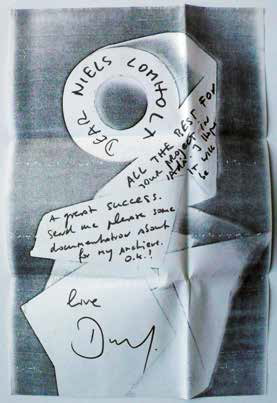 DEAR NIELS LOMHOLT
ALL THE BEST FOR
YOUR PROJECT IN
I hope
IT WILL
be
A great success.
Send me please some
documentation about
for my archive.
O.K.!
love